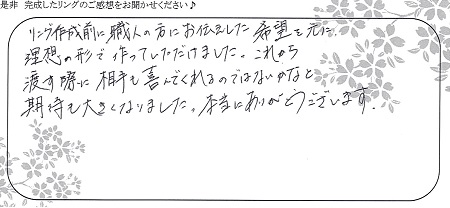 是非 完成したリングのご感想をお聞かせください♪
リング作成前に職人の方にお伝えした希望を元に
理想の形で作っていただけました。これから
渡す際に相手も喜んでくれるのではないかなと
期待も大きくなりました。本当にありがとうございます。